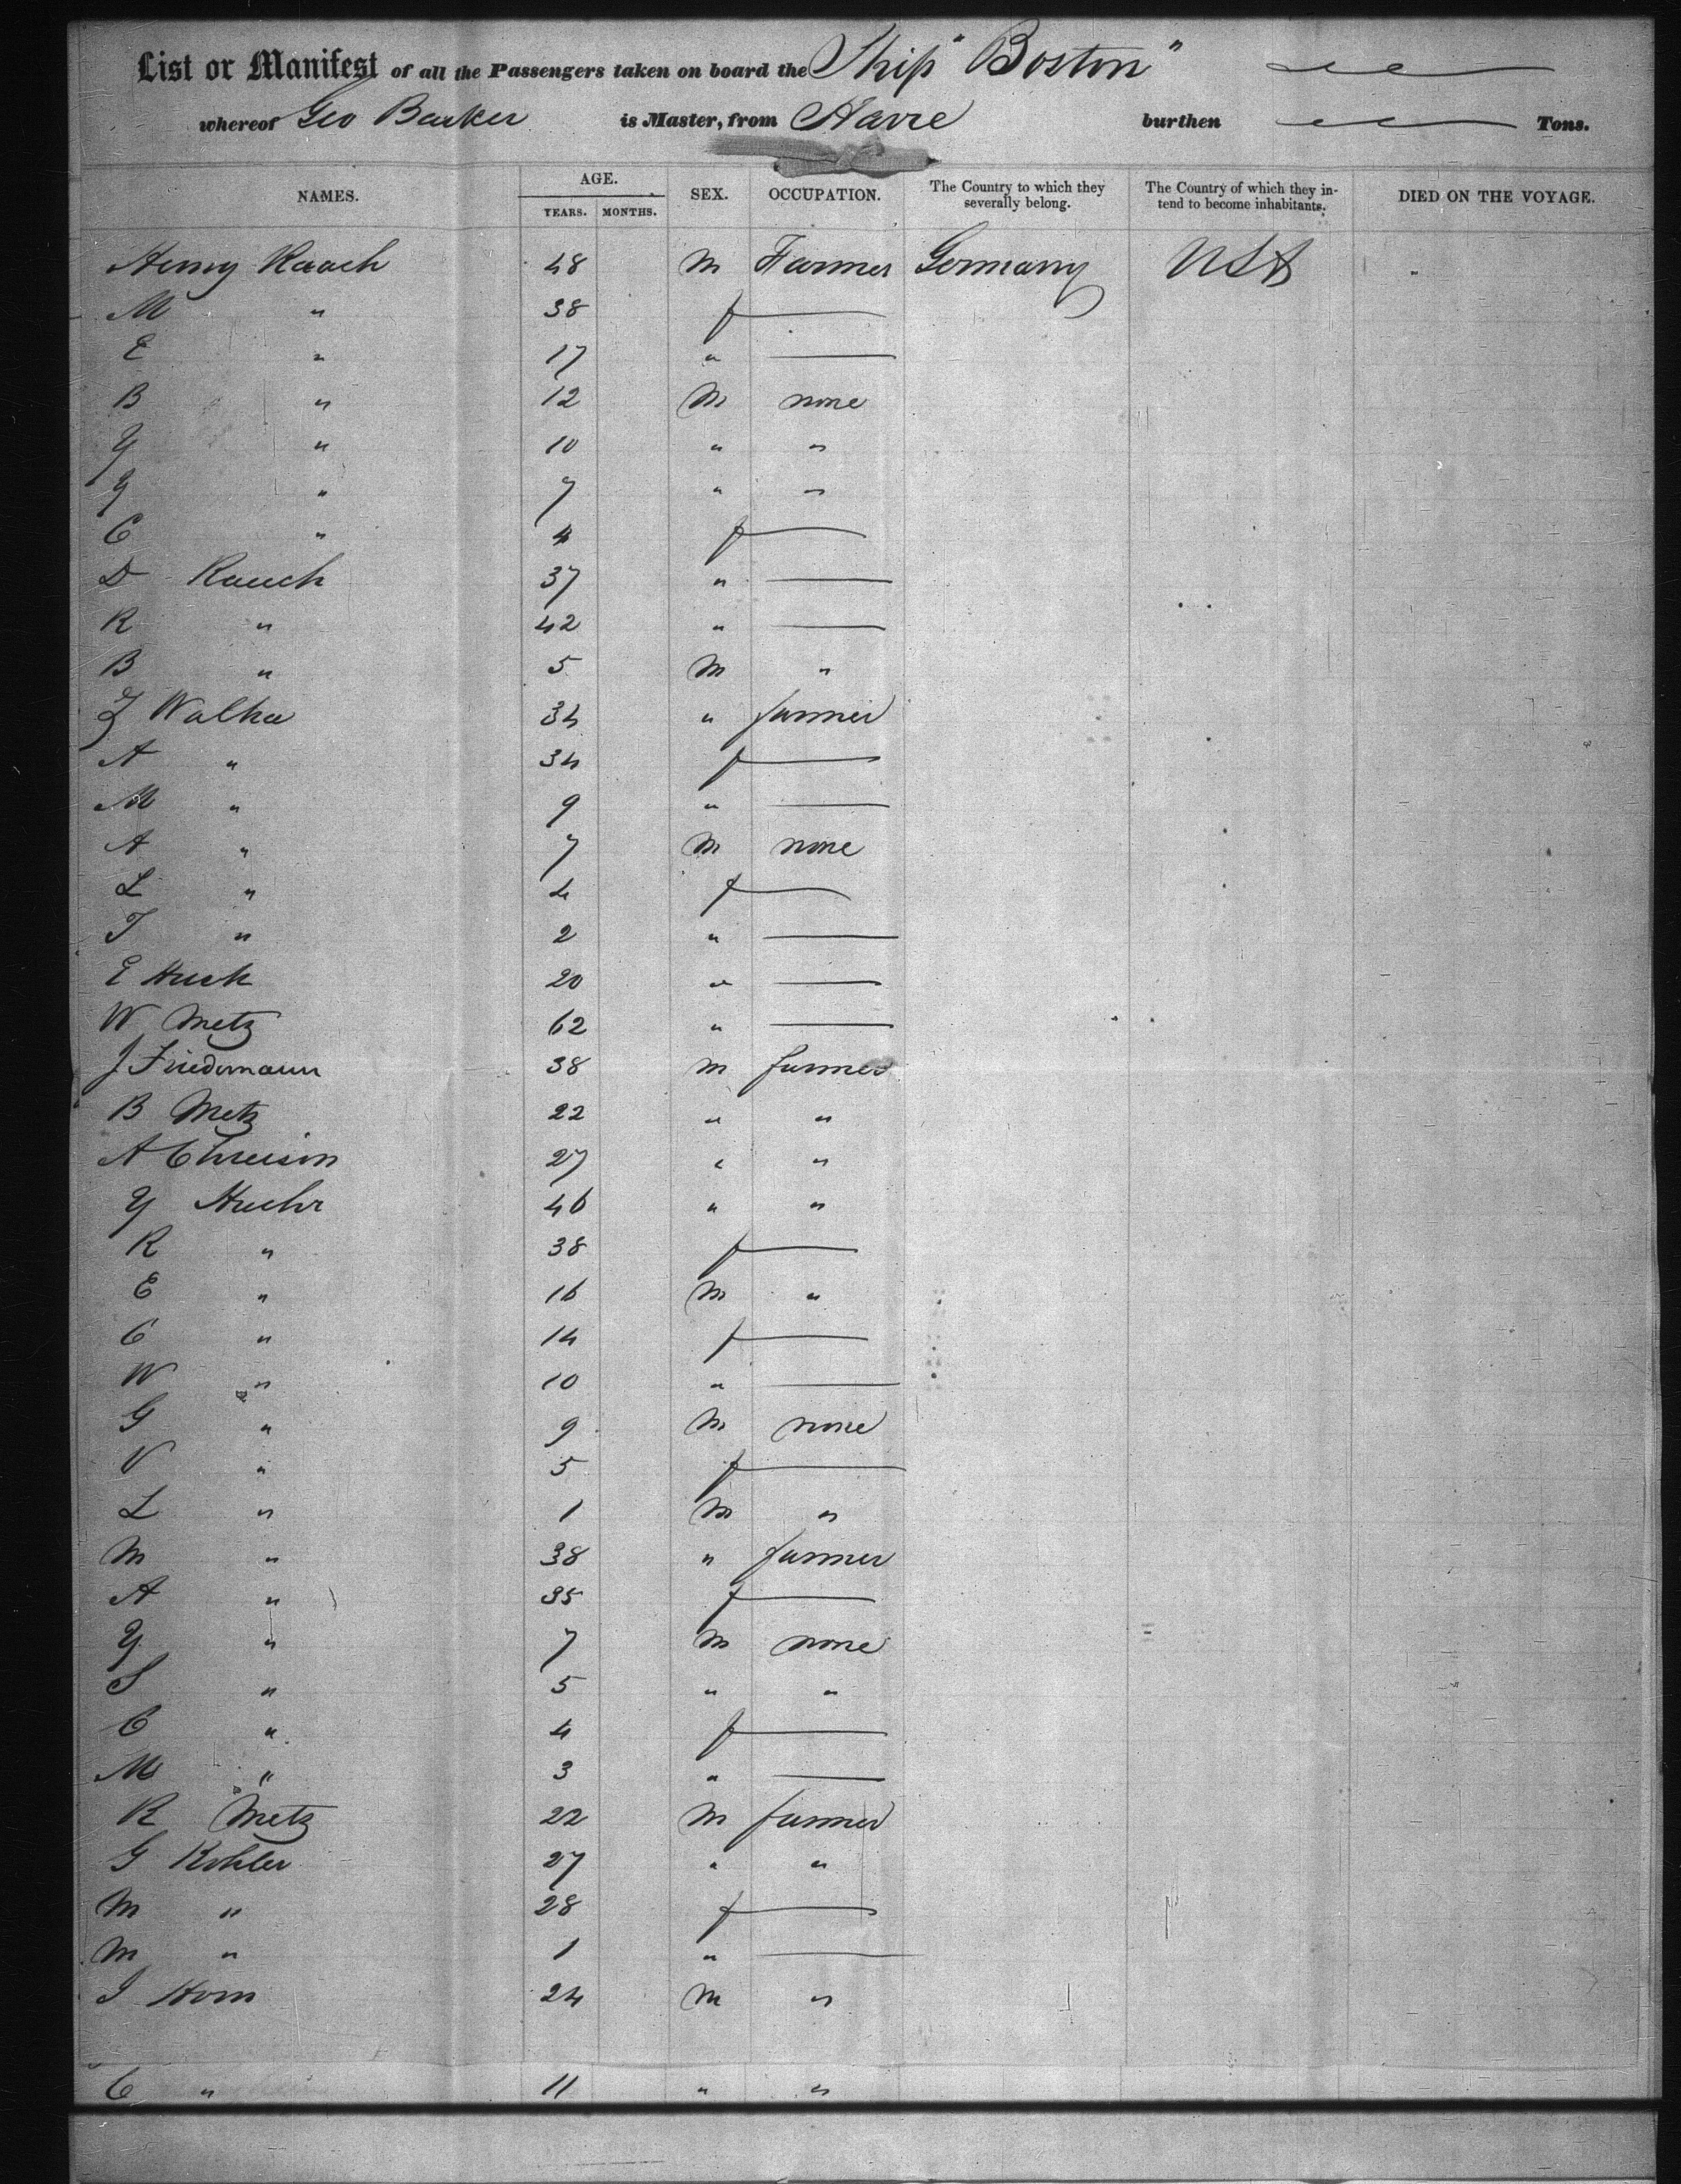 List or Manifest of all the Passengers taken on board the Ship "Boston"
whereof Geo Barker is Master, from Havre burthen Tons.
NAMES. AGE. YEARS. MONTHS. SEX. OCCUPATION. The Country to which they severally belong. The Country of which they intend to become inhabitants. DIED ON THE VOYAGE.
Henry Raach 48 m Farmer Germany USA
M " 38 f
E " 17 "
B " 12 M none
Y " 10 " "
Y " 7 " "
C " 4 f
D Rauch 37 "
R " 42 "
B " 5 M "
Walka 34 " farmer
A " 34 f
M " 9 "
A " 7 M none
L " 4 f
T " 2 "
E Huck 20 "
W Metz 62 "
J Friedmann 38 m farmer
B Metz 22 " "
A 27 " "
Y Huehr 46 " "
R " 38 f
E " 16 M "
C " 14 f
W " 10 "
G " 9 M none
V " 5 f
L " 1 M "
M " 38 " farmer
A " 35 f
Y " 7 M none
S " 5 " "
C " 4 f
M " 3 "
R Metz 22 M farmer
G Kohler 27 " "
M " 28 f
M " 1 "
J Horn 24 M "
C " 11 " "